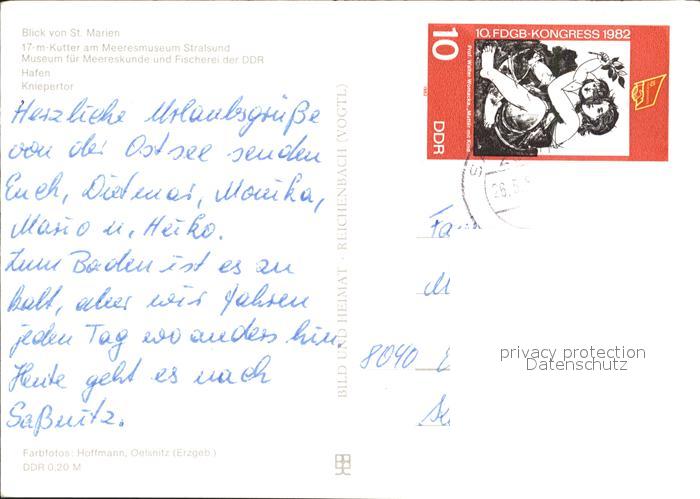 Blick von St. Marien
17-m-Kutter am Meeresmuseum Stralsund
Museum für Meereskunde und Fischerei der DDR
Hafen
Kniepertor
Herzliche Urlaubsgrüße
von der Ostsee senden
Euch, Dietmar, Monika,
Mario u. Heiko.
Zum Baden ist es zu
kalt, aber wir fahren
jeden Tag wo anders hin.
Heute geht es nach
Saßnitz.
Farbfotos: Hoffmann, Oelsnitz (Erzgeb.)
DDR 0,20 M
BILD UND HEIMAT · REICHENBACH (VOGTL)
10 10. FDGB-KONGRESS 1982
Prof. Walter Womacka, „Mutter und Kind“
1982
DDR
8040
privacy protection
Datenschutz